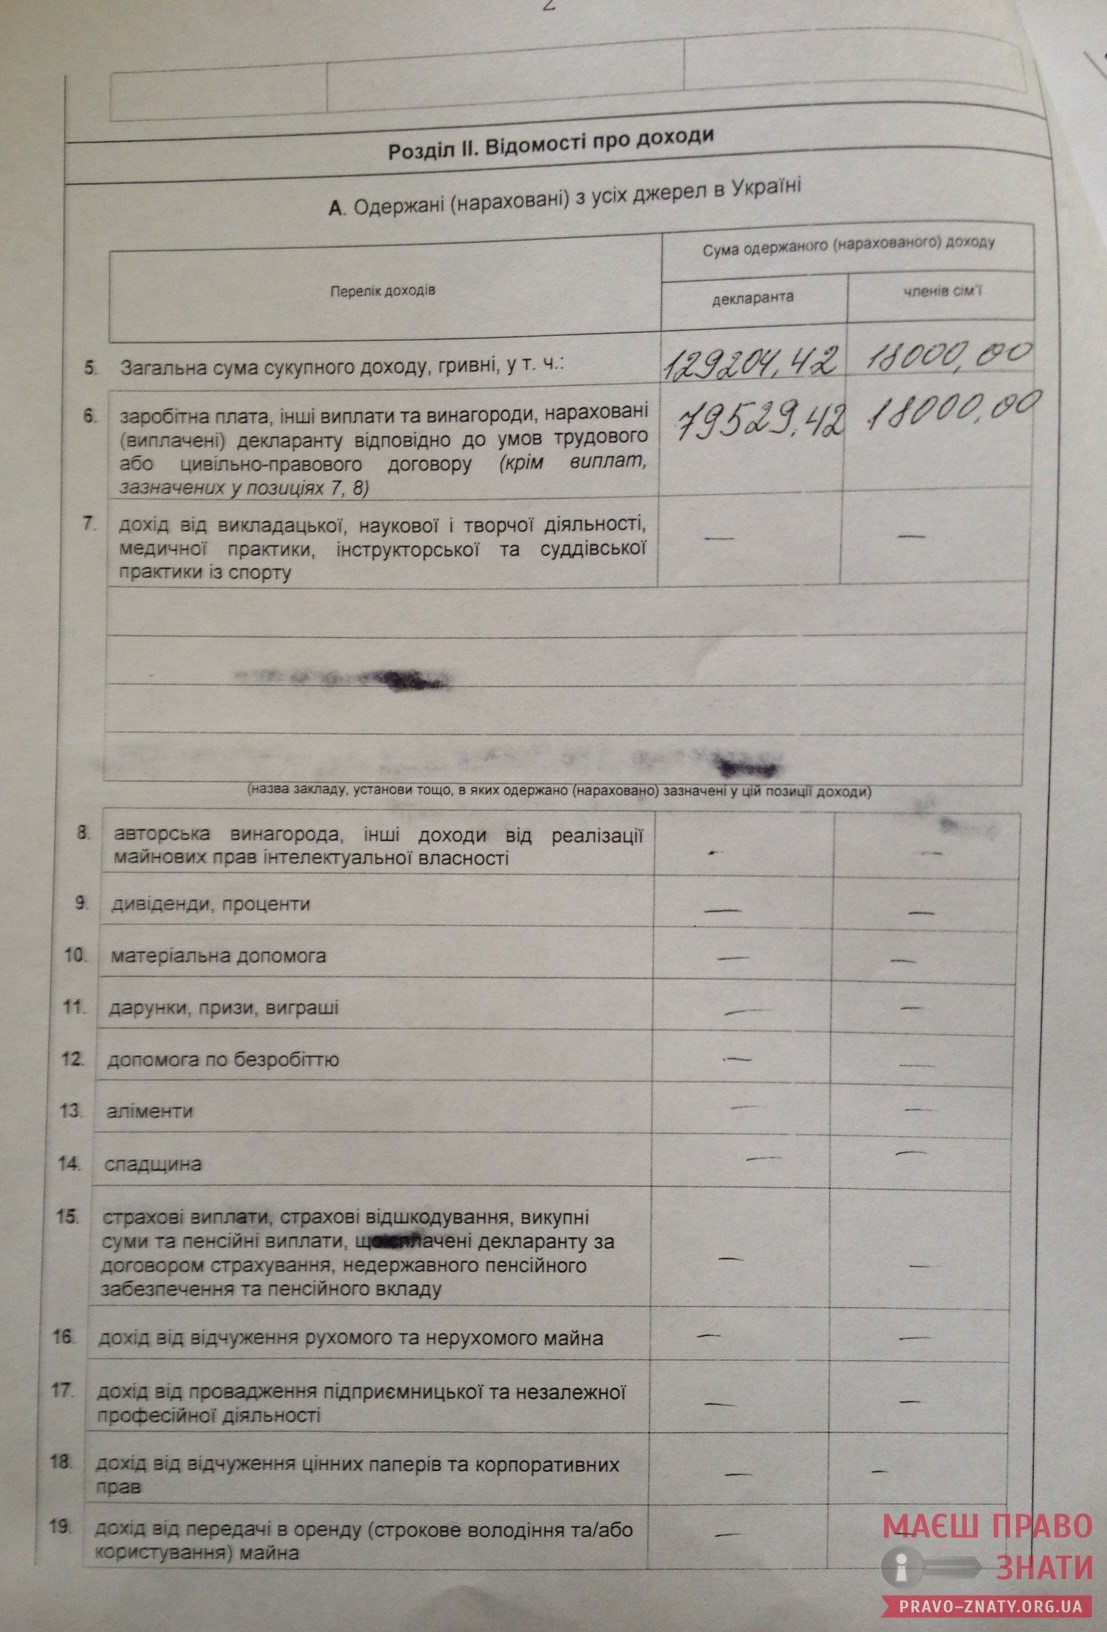 2
Розділ II. Відомості про доходи
А. Одержані (нараховані) з усіх джерел в Україні
Перелік доходів
Сума одержаного (нарахованого) доходу
декларанта
членів сім'ї
5. Загальна сума сукупного доходу, гривні, у т. ч.: 129204,42 18000,00
6. заробітна плата, інші виплати та винагороди, нараховані 79529,42 18000,00
(виплачені) декларанту відповідно до умов трудового
або цивільно-правового договору (крім виплат,
зазначених у позиціях 7, 8)
7. дохід від викладацької, наукової і творчої діяльності,
медичної практики, інструкторської та суддівської — —
практики із спорту
(назва закладу, установи тощо, в яких одержано (нараховано) зазначені у цій позиції доходи)
8. авторська винагорода, інші доходи від реалізації - —
майнових прав інтелектуальної власності
9. дивіденди, проценти — —
10. матеріальна допомога — —
11. дарунки, призи, виграші — —
12. допомога по безробіттю — —
13. аліменти — —
14. спадщина — —
15. страхові виплати, страхові відшкодування, викупні
суми та пенсійні виплати, декларанту за
договором страхування, недержавного пенсійного — —
забезпечення та пенсійного вкладу
16. дохід від відчуження рухомого та нерухомого майна — —
17. дохід від провадження підприємницької та незалежної — —
професійної діяльності
18. дохід від відчуження цінних паперів та корпоративних — —
прав
19. дохід від передачі в оренду (строкове володіння та/або — —
користування) майна
МАЄШ ПРАВО
ЗНАТИ
PRAVO-ZNATY.ORG.UA